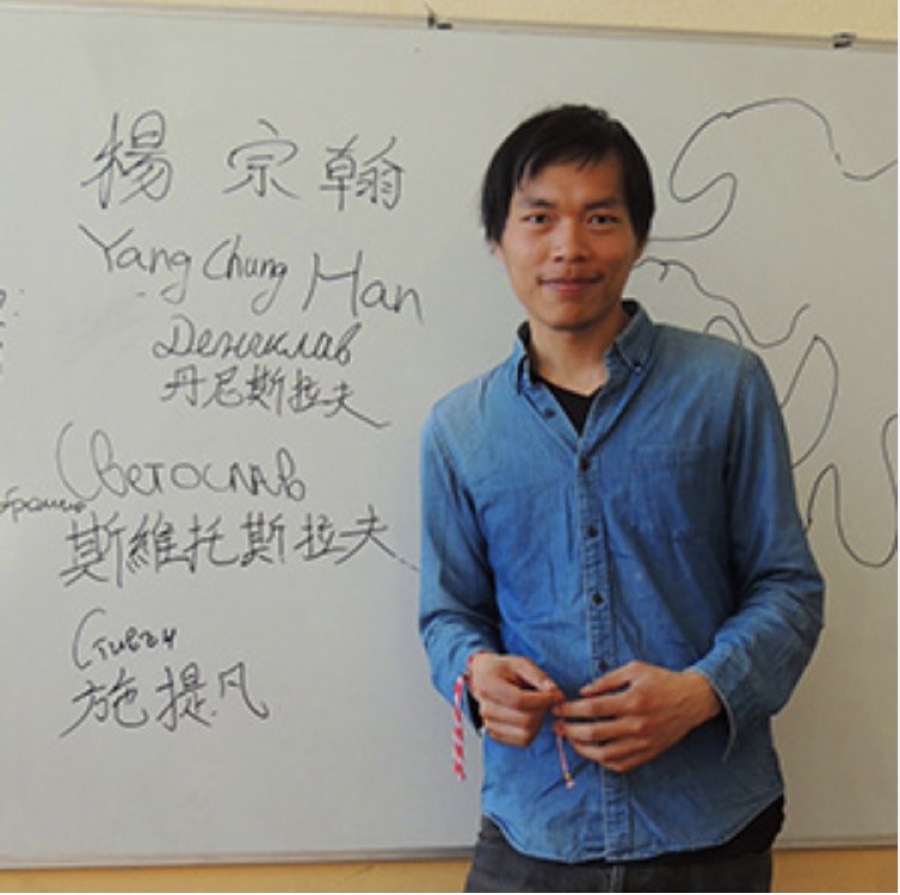 楊 宗 翰
Yang Chung Han
Дениклав
丹尼斯拉夫
Светослав
斯維托斯拉夫
Стивън
施提凡